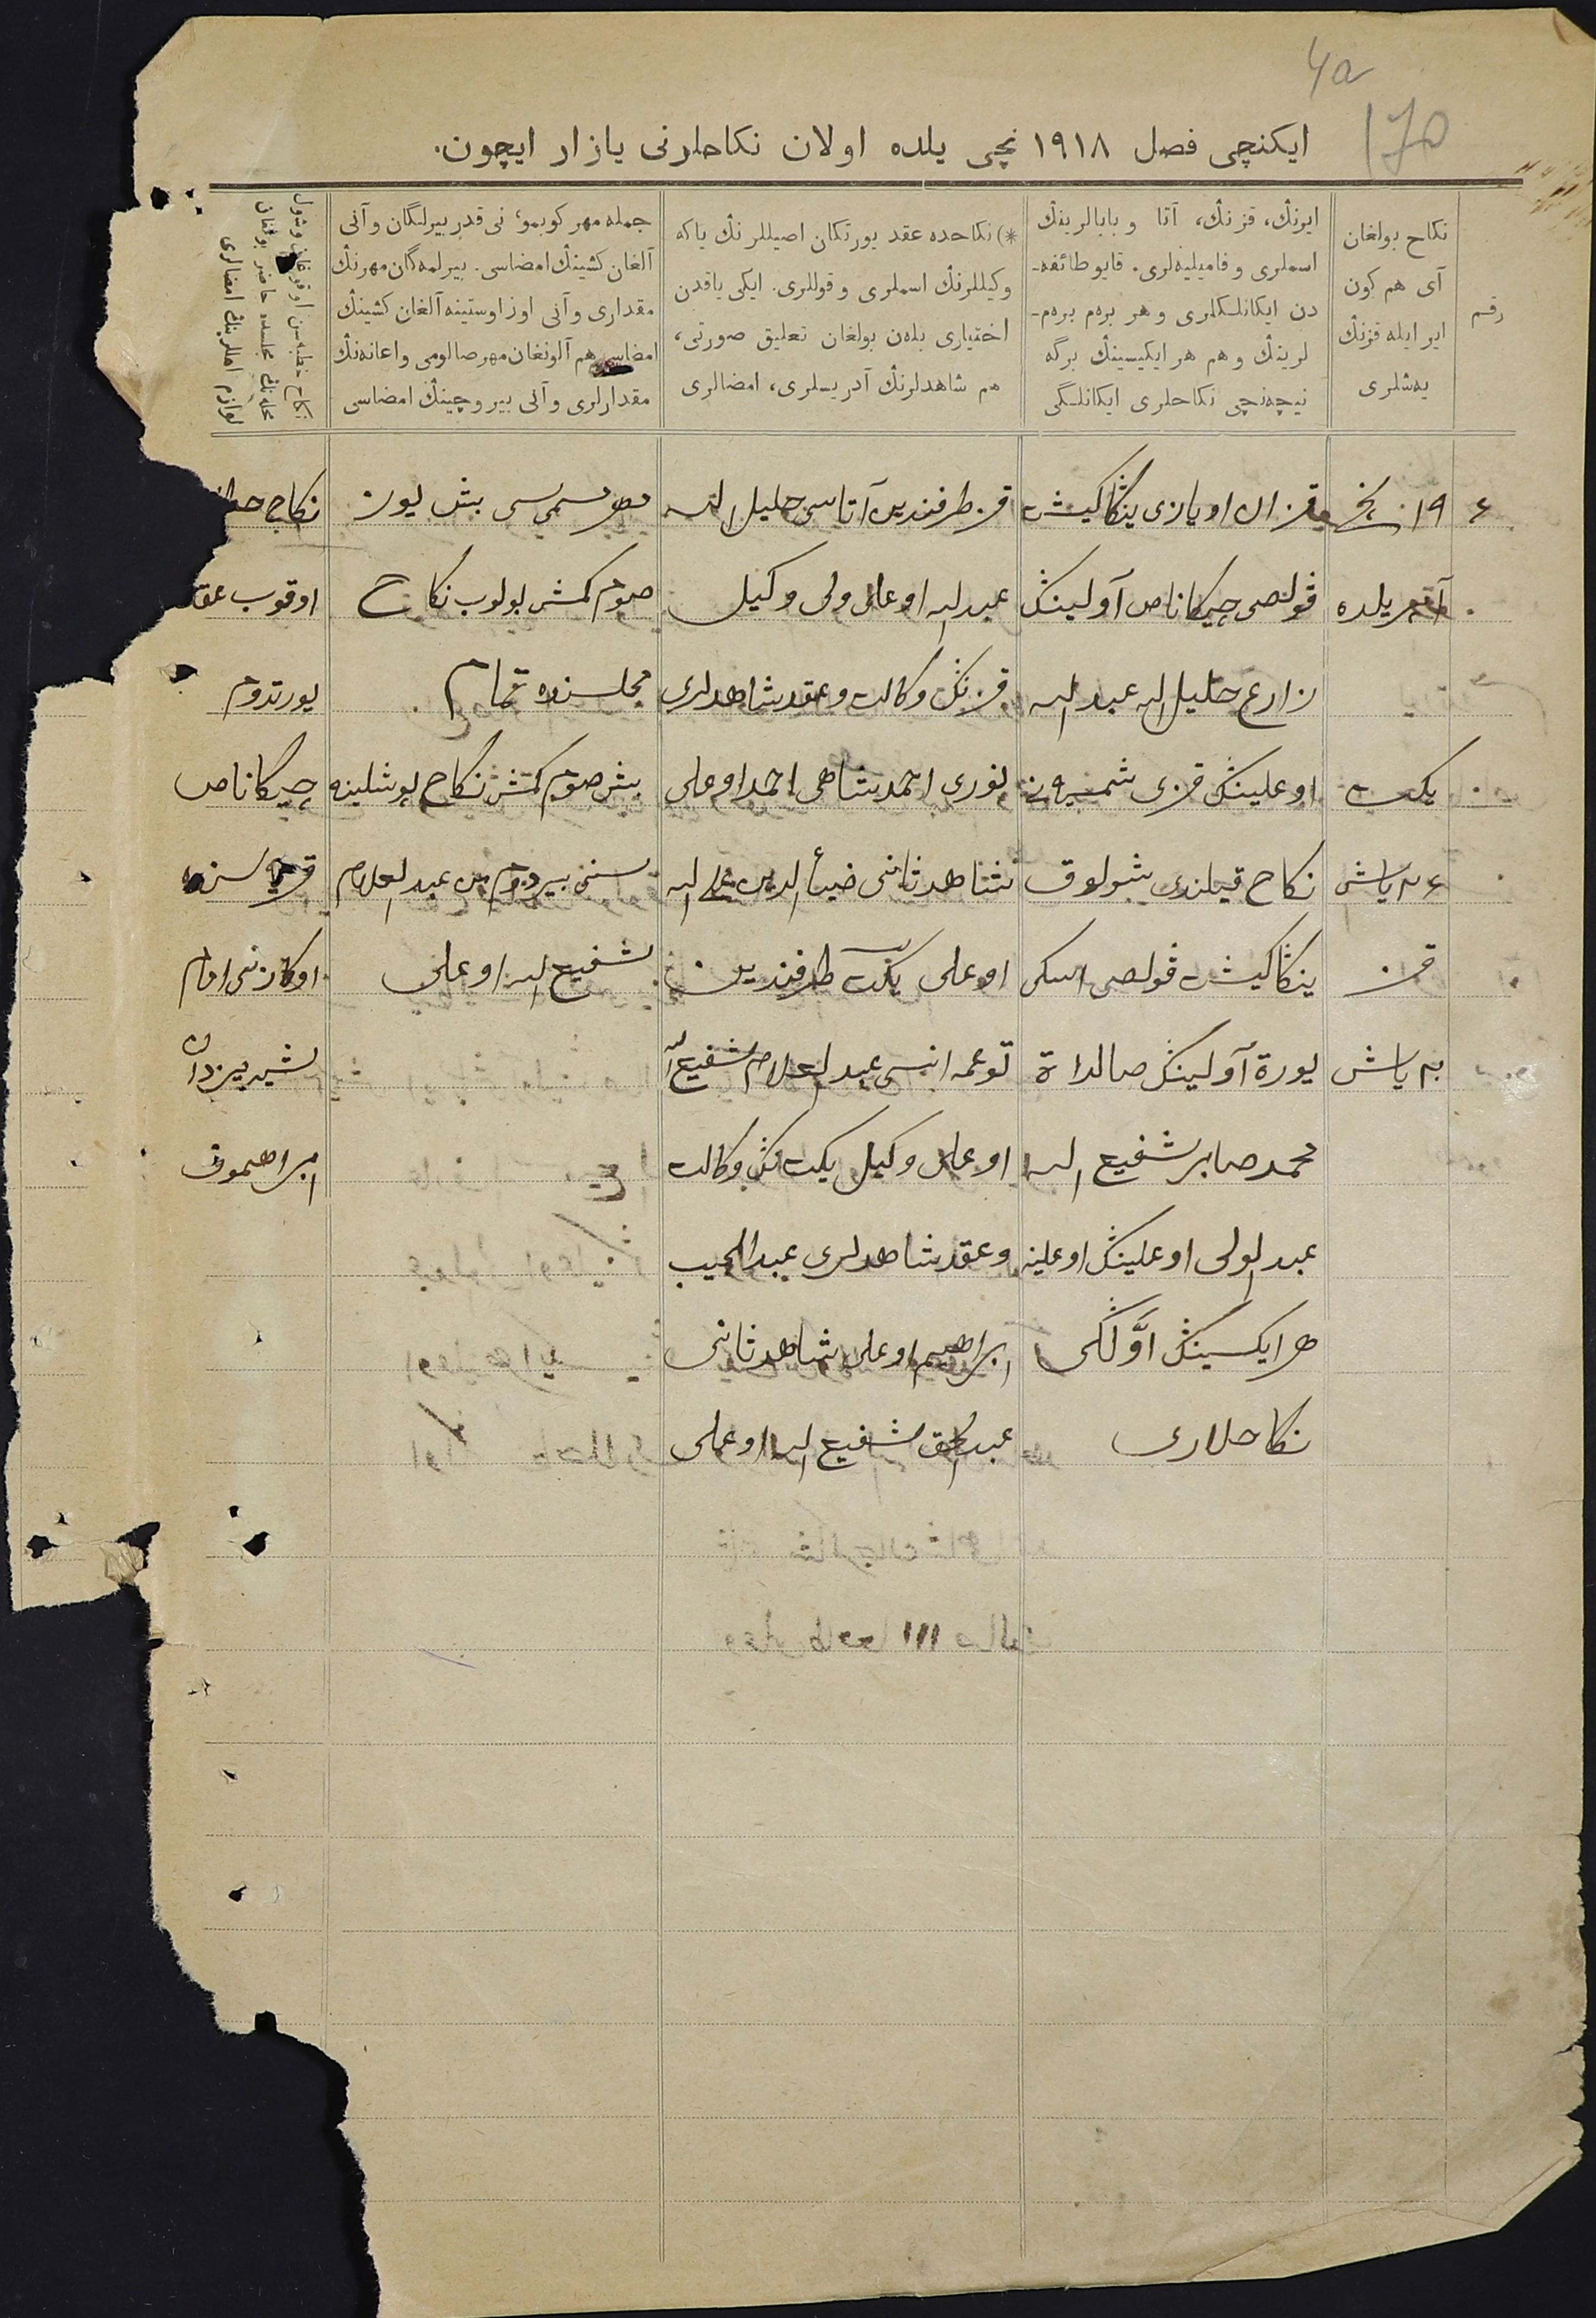 4a
170
ایکنچی فصل ۱۹۱۸ نچی یلده اولان نکاحلرنی یازار ایچون.
رقم
نکاح بولغان
آی هم کون
ایر ایله قزنڭ
یەشلری
ایرنڭ، قزنڭ، آتا و بابالرینڭ
اسملری و فامیلیەلری. قایو طائفە-
دن ایکانلکلری و هر برەم برەم-
لرینڭ و هم هر ایکیسینڭ برگە
نیچەنچی نکاحلری ایکانلگی
*) نکاحده عقد یورتکان اصیللرنڭ یاکە
وکیللرنڭ اسملری و قوللری. ایکی یاقدن
اختیاری بلەن بولغان تعلیق صورتی،
هم شاهدلرنڭ آدریسلری، امضالری
جملە مهر کوبمو، نی قدر بیرلگان و آنی
آلغان کشینڭ امضاسی. بیرلمەگان مهرنڭ
مقداری و آنی اوز اوستینە آلغان کشینڭ
امضاسی هم آلونغان مهر صالومی و اعانەنڭ
مقدارلری و آنی بیروچینڭ امضاسی
نکاح خطبەسن اوقوغان وشول
محلەنڭ مجلسده حاضر بولغان
لوازم اهللرینڭ امضالری
۱۹ نچی
یلده
یکت
یاش
قز
یاش
قزان اویازی ینڭاکیشت
ڤولصی چیکاناص آولینڭ
زارع خلیل الله عبد الله
اوغلینڭ قزی
نکاح قیلندی شولوق
ینڭاکیشت ڤولصی اسکی
یورة آولینڭ صالداة
محمدصابر شفیع الله
عبدالولی اوغلینڭ اوغلینه
هر ایکسینڭ اوّلگی
نکاحلاری
قز طرفندین آتاسی خلیل الله
عبدالله اوغلی ولی وکیل
قزنڭ وکالت و عقد شاهدلری
نوری احمد شاهی احمد اوغلی
شاهد ثانی ضیأ الدین
اوغلی یکت طرفندین
توغمه انسی عبدالعلام شفیع الله
اوغلی وکیل یکت نڭ وکالت
وعقد شاهدلری عبدالحبیب
ابراهیم اوغلی شاهد ثانی
عبدالحق شفیع الله اوغلی
مهر مسمی سی بش یوز
صوم کمش بولوب نکاح
مجلسنده تمام
بش صوم کمش نکاح پوشلینه
سنی بیردوم من عبدالعلام
شفیع الله اوغلی
نکاح
اوقوب عقد
یورتدوم
چیکاناص
قریه سنده
اوکازنی امام
ابراهیموف